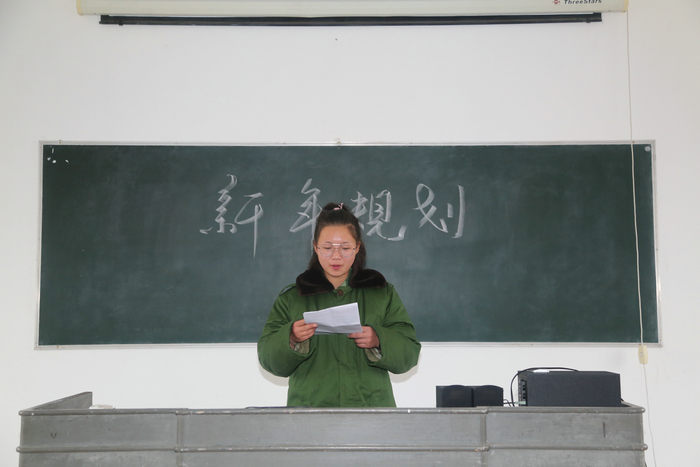 ThreeStars
新年规划